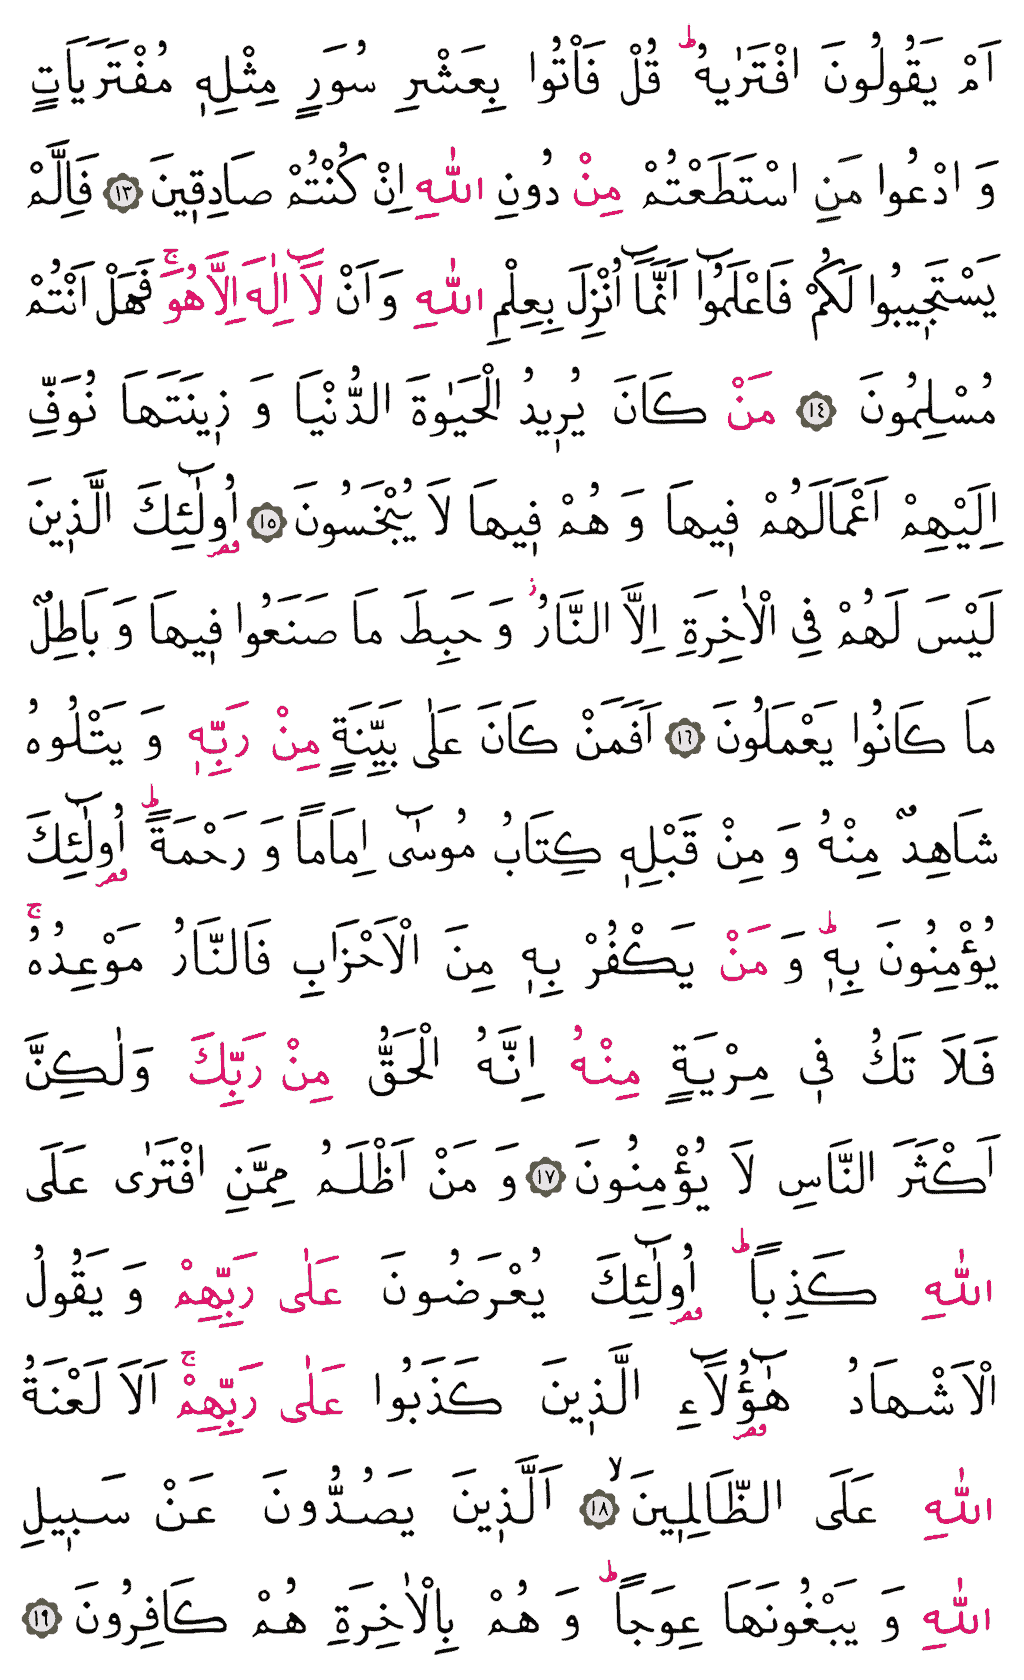 اَمْ يَقُولُونَ افْتَرٰيهُ ؕ قُلْ فَاْتُوا بِعَشْرِ سُوَرٍ مِثْلِهٖ مُفْتَرَيَاتٍ
وَ ادْعُوا مَنِ اسْتَطَعْتُمْ مِنْ دُونِ اللّٰهِ اِنْ كُنْتُمْ صَادِقٖينَ ﴿١٣﴾ فَاِلَّمْ
يَسْتَجٖيبُوا لَكُمْ فَاعْلَمُٓوا اَنَّمَٓا اُنْزِلَ بِعِلْمِ اللّٰهِ وَ اَنْ لَٓا اِلٰهَ اِلَّا هُوَ ۚ فَهَلْ اَنْتُمْ
مُسْلِمُونَ ﴿١٤﴾ مَنْ كَانَ يُرٖيدُ الْحَيٰوةَ الدُّنْيَا وَ زٖينَتَهَا نُوَفِّ
اِلَيْهِمْ اَعْمَالَهُمْ فٖيهَا وَ هُمْ فٖيهَا لَا يُبْخَسُونَ ﴿١٥﴾ اُولٰٓئِكَ الَّذٖينَ
لَيْسَ لَهُمْ فِي الْاٰخِرَةِ اِلَّا النَّارُ ؗ وَ حَبِطَ مَا صَنَعُوا فٖيهَا وَ بَاطِلٌ
مَا كَانُوا يَعْمَلُونَ ﴿١٦﴾ اَفَمَنْ كَانَ عَلٰى بَيِّنَةٍ مِنْ رَبِّهٖ وَ يَتْلُوهُ
شَاهِدٌ مِنْهُ وَ مِنْ قَبْلِهٖ كِتَابُ مُوسٰٓى اِمَاماً وَ رَحْمَةً ؕ اُولٰٓئِكَ
يُؤْمِنُونَ بِهٖ ؕ وَ مَنْ يَكْفُرْ بِهٖ مِنَ الْاَحْزَابِ فَالنَّارُ مَوْعِدُهُ ۚ
فَلَا تَكُ فٖي مِرْيَةٍ مِنْهُ اِنَّهُ الْحَقُّ مِنْ رَبِّكَ وَلٰكِنَّ
اَكْثَرَ النَّاسِ لَا يُؤْمِنُونَ ﴿١٧﴾ وَ مَنْ اَظْلَمُ مِمَّنِ افْتَرٰى عَلَى
اللّٰهِ كَذِباً ؕ اُولٰٓئِكَ يُعْرَضُونَ عَلٰى رَبِّهِمْ وَ يَقُولُ
الْاَشْهَادُ هٰٓؤُلَٓاءِ الَّذٖينَ كَذَبُوا عَلٰى رَبِّهِمْ ۚ اَلَا لَعْنَةُ
اللّٰهِ عَلَى الظَّالِمٖينَ ۙ ﴿١٨﴾ اَلَّذٖينَ يَصُدُّونَ عَنْ سَبٖيلِ
اللّٰهِ وَ يَبْغُونَهَا عِوَجاً ؕ وَ هُمْ بِالْاٰخِرَةِ هُمْ كَافِرُونَ ﴿١٩﴾